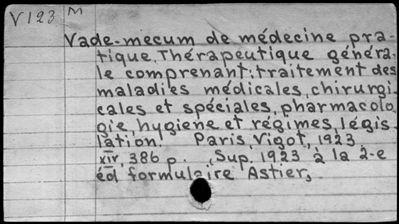 V123 M
Vade-mecum de médecine pra-
tique. Thérapeutique généra-
le comprenant: traitement des
maladies médicales, chirurgi-
cales et spéciales, pharmacolo
gie, hygiene et régimes, légis-
lation. Paris, Vigot, 1923,
xiv, 386 p. Sup. 1923 à la 2-e
éd formulaire Astier,